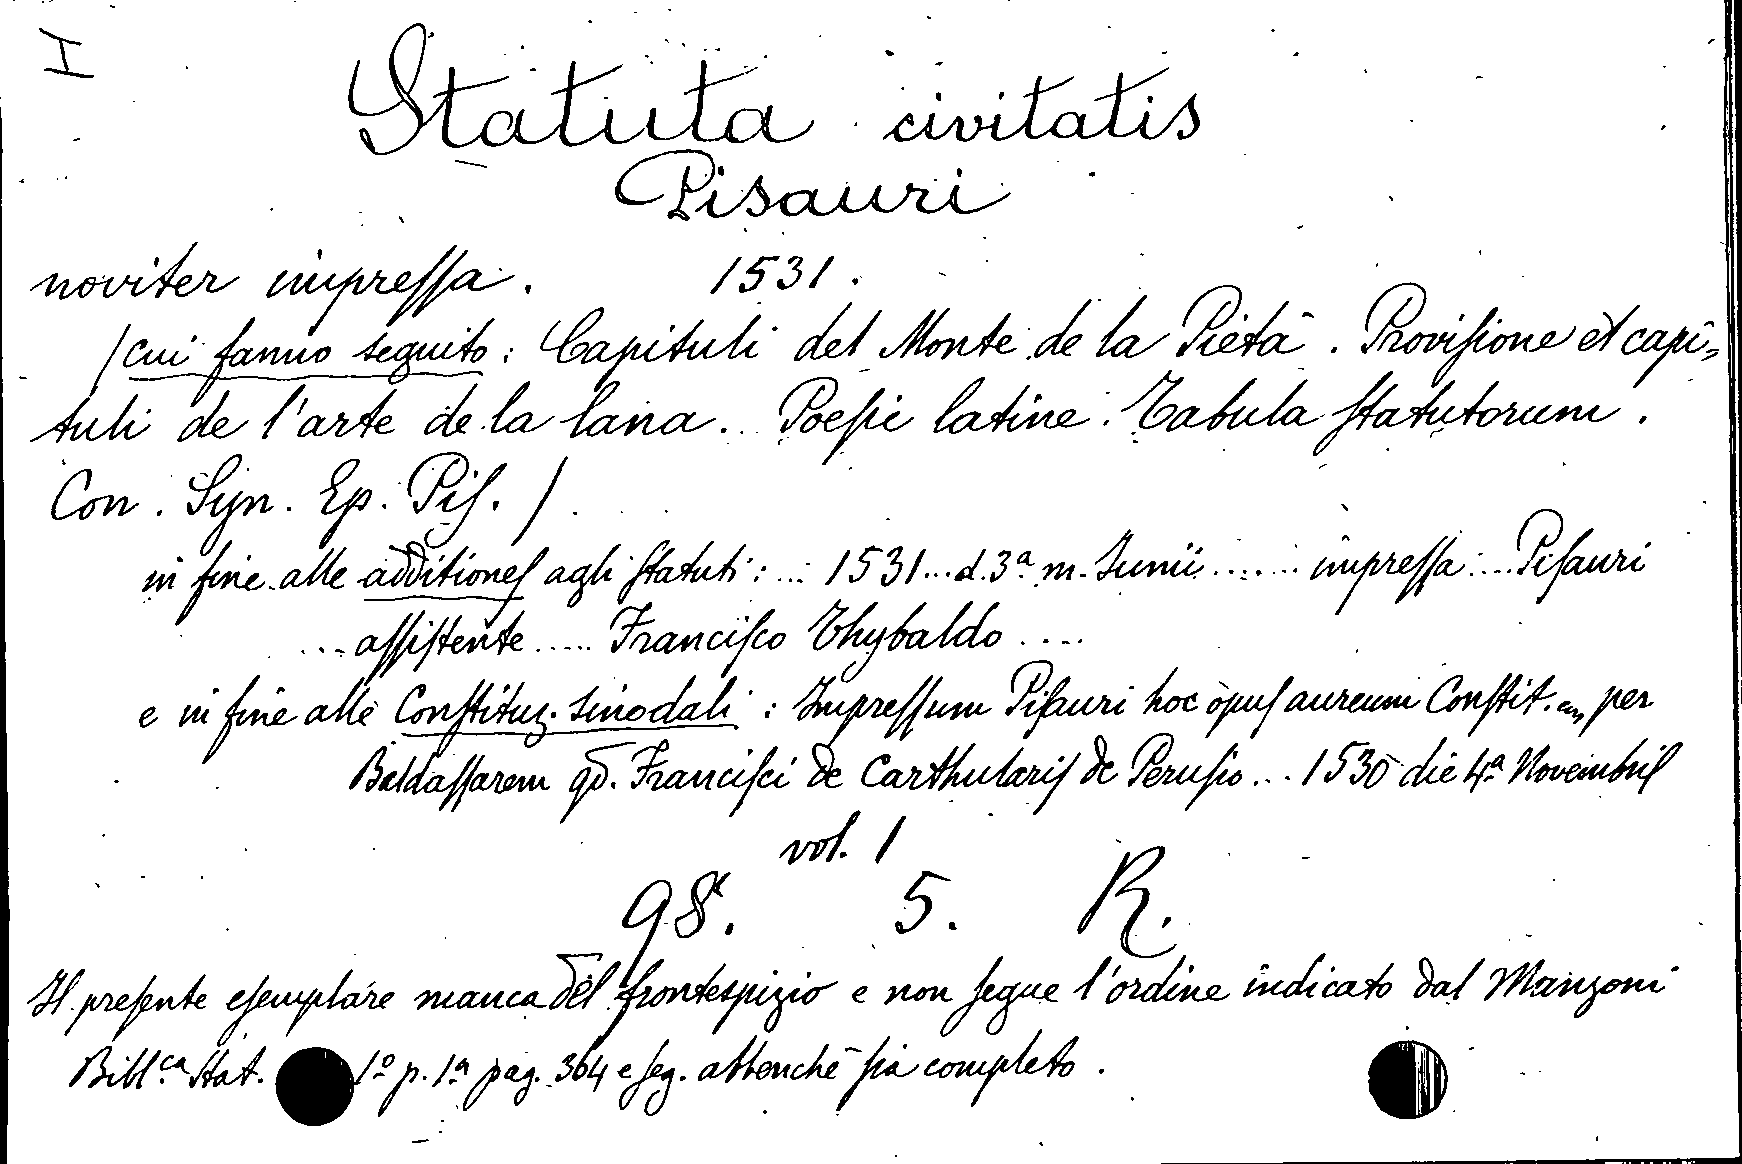 I
Statuta civitatis
Pisauri
noviter impressa. 1531.
(cui fanno seguito: Capituli del Monte de la Pietà. Provisione et capi-
tuli de l'arte de la lana. Poesie latine. Tabula statutorum.
Con. Syn. Ep. Pis.)
in fine alle additiones agli statuti: ... 1531...d.3ª m. Junii ...... impressa .... Pisauri
... assistente ..... Francisco Thybaldo ....
e in fine alle Constituz. sinodali: Impressum Pisauri hoc opus aureum Constit. per
Baldassarem qd. Francisci de Carthularis de Perusio... 1530 die 4ª Novembris
vol. 1
98. 5. R.
Il presente esemplare manca del frontespizio e non segue l'ordine indicato dal Manzoni
Bibl.ca Stat. 1º p. 1ª pag. 364 e seg. abbenchè sia completo.